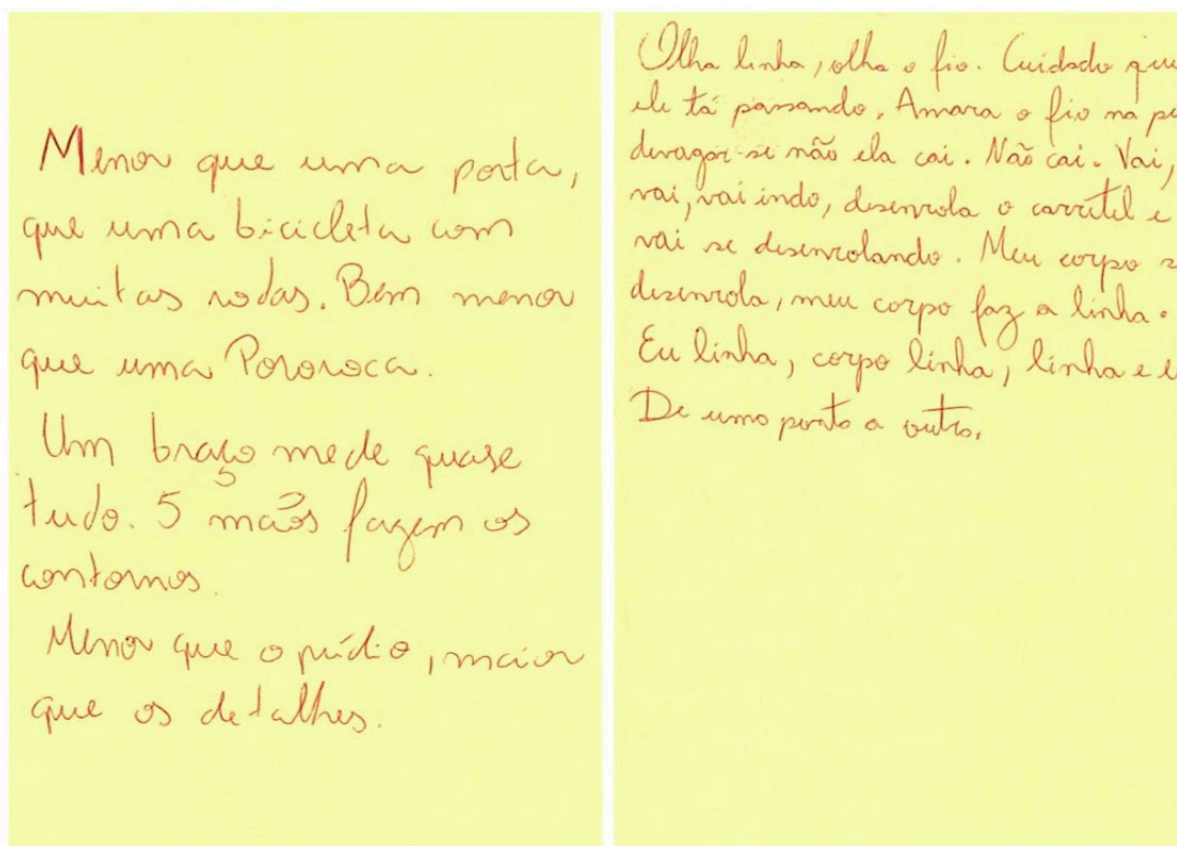 Menor que uma porta,
que uma bicicleta com
muitas rodas. Bem menor
que uma Pororoca.
Um braço mede quase
tudo. 5 mãos fazem os
contornos.
Menor que o prédio, maior
que os detalhes.
Olha linha, olha o fio. Cuidado que
ele tá passando. Amara o fio na
devagar se não ela cai. Não cai. Vai,
vai, vai indo, desenrola o carretel e
vai se desenrolando. Meu corpo
desenrola, meu corpo faz a linha.
Eu linha, corpo linha, linha e
De umo ponto a outro.